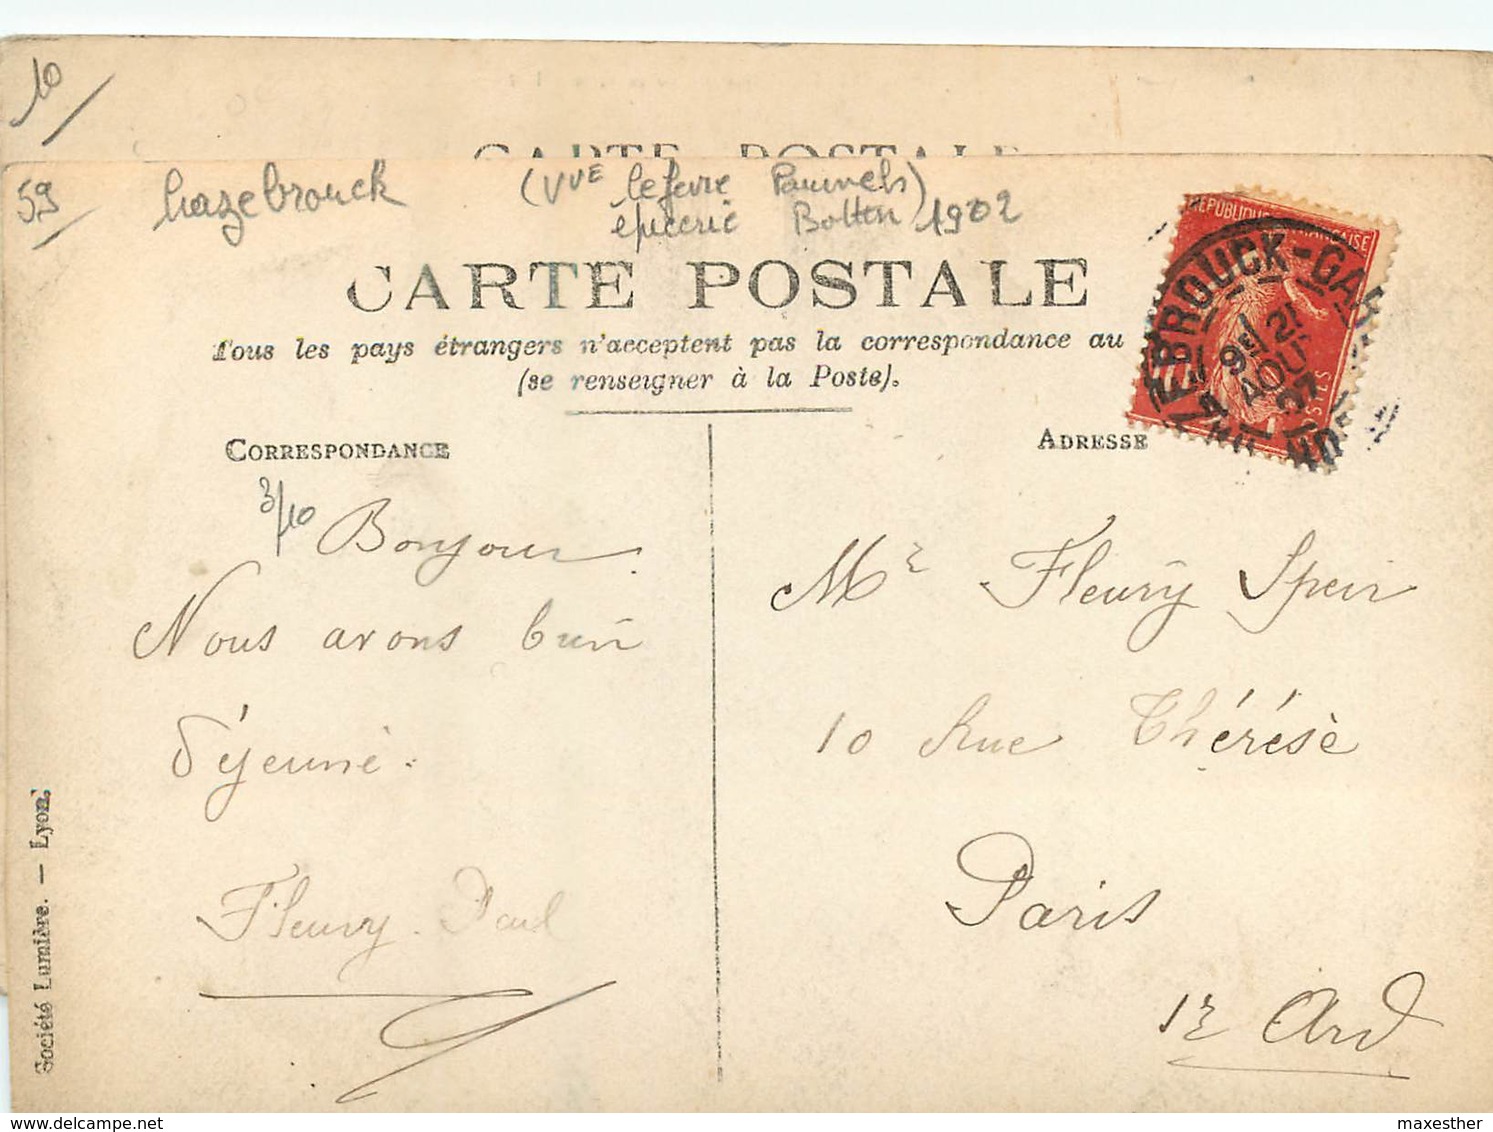 10/
CARTE POSTALE
59/ hazebrouck (Vve lefevre Pauwels)
epicerie Botten 1902
CARTE POSTALE
Tous les pays étrangers n'acceptent pas la correspondance au
(se renseigner à la Poste).
REPUBLIQUE FRANÇAISE
POSTES
AOUT
07
CORRESPONDANCE
ADRESSE
3/10 Bonjour
Nous avons bien
déjeuné.
Fleury Paul
Mr Fleury Speir
10 Rue Thérèse
Paris
1r Ard
Société Lumière. — Lyon.
maxesther